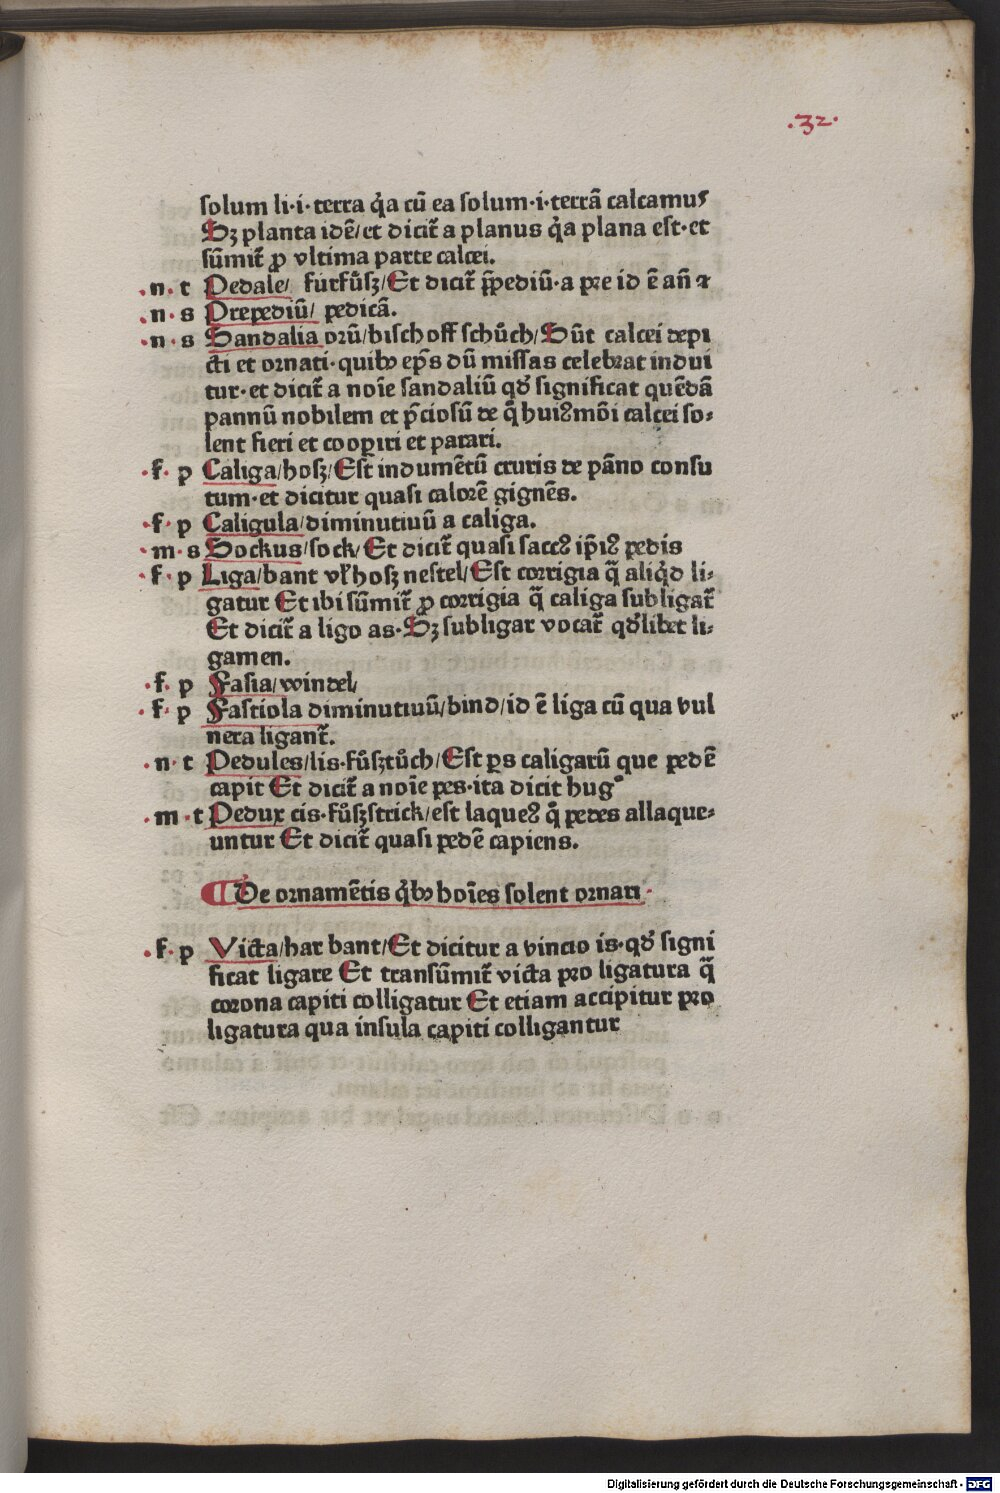 .32.
solum li·i·terra q̇a cū ea solum·i·terrā calcamus
Sȝ planta idē/et dicit̄ a planus q̇a plana est·et
sūmit̄ ꝓ vltima parte calcei.
.n.t Pedale/ furfůſȝ/Et dicit̄ p̄pediū·a pre id ē añ ⁊
.n.s Prepediū/ pedicā.
.n.s Sandalia orū/bischoff schůch/Sūt calcei depi
cti et ornati·quibꝰ ep̄s dū missas celebrat indui
tur·et dicit̄ a noīe sandaliū qd̓ significat quēdā
pannū nobilem et p̄ciosū de q̄ huiꝰmōi calcei so-
lent fieri et cooꝑiri et parari.
·f·p Caliga/hosȝ/Est indumētū cruris de pāno consu
tum·et dicitur quasi calorē gignēs.
·f·p Caligula/diminutiuū a caliga.
·m·s Sockus/sock/Et dicit̄ quasi saccꝰ ip̄iꝰ pedis
·f·p Liga/bant vl̓ hosȝ nestel/Est corrigia q̄ aliq̇d li-
gatur Et ibi sūmit̄ ꝓ corrigia q̄ caliga subligat̄
Et dicit̄ a ligo as·Sȝ subligar vocat̄ qd̓libet li-
gamen.
·f·p Fasia/windel/
·f·p Fastiola diminutiuū/bind/id ē liga cū qua vul
nera ligant̄.
.n·t Pedules/lis·fůſȝtůch/Est ꝑs caligarū que pedē
capit Et dicit̄ a noīe pes·ita dicit hugꝰ
.m·t Pedux cis·fůſȝstrick/est laqueꝰ q̄ pedes allaque-
untur Et dicit̄ quasi pedē capiens.
¶De ornamētis q̇bꝰ hoīes solent ornari·
.f·p Victa/har bant/Et dicitur a vincio is·qd̓ signi
ficat ligare Et transūmit̄ victa pro ligatura q̄
corona capiti colligatur Et etiam accipitur pro
ligatura qua insula capiti colligantur
Digitalisierung gefördert durch die Deutsche Forschungsgemeinschaft - DFG